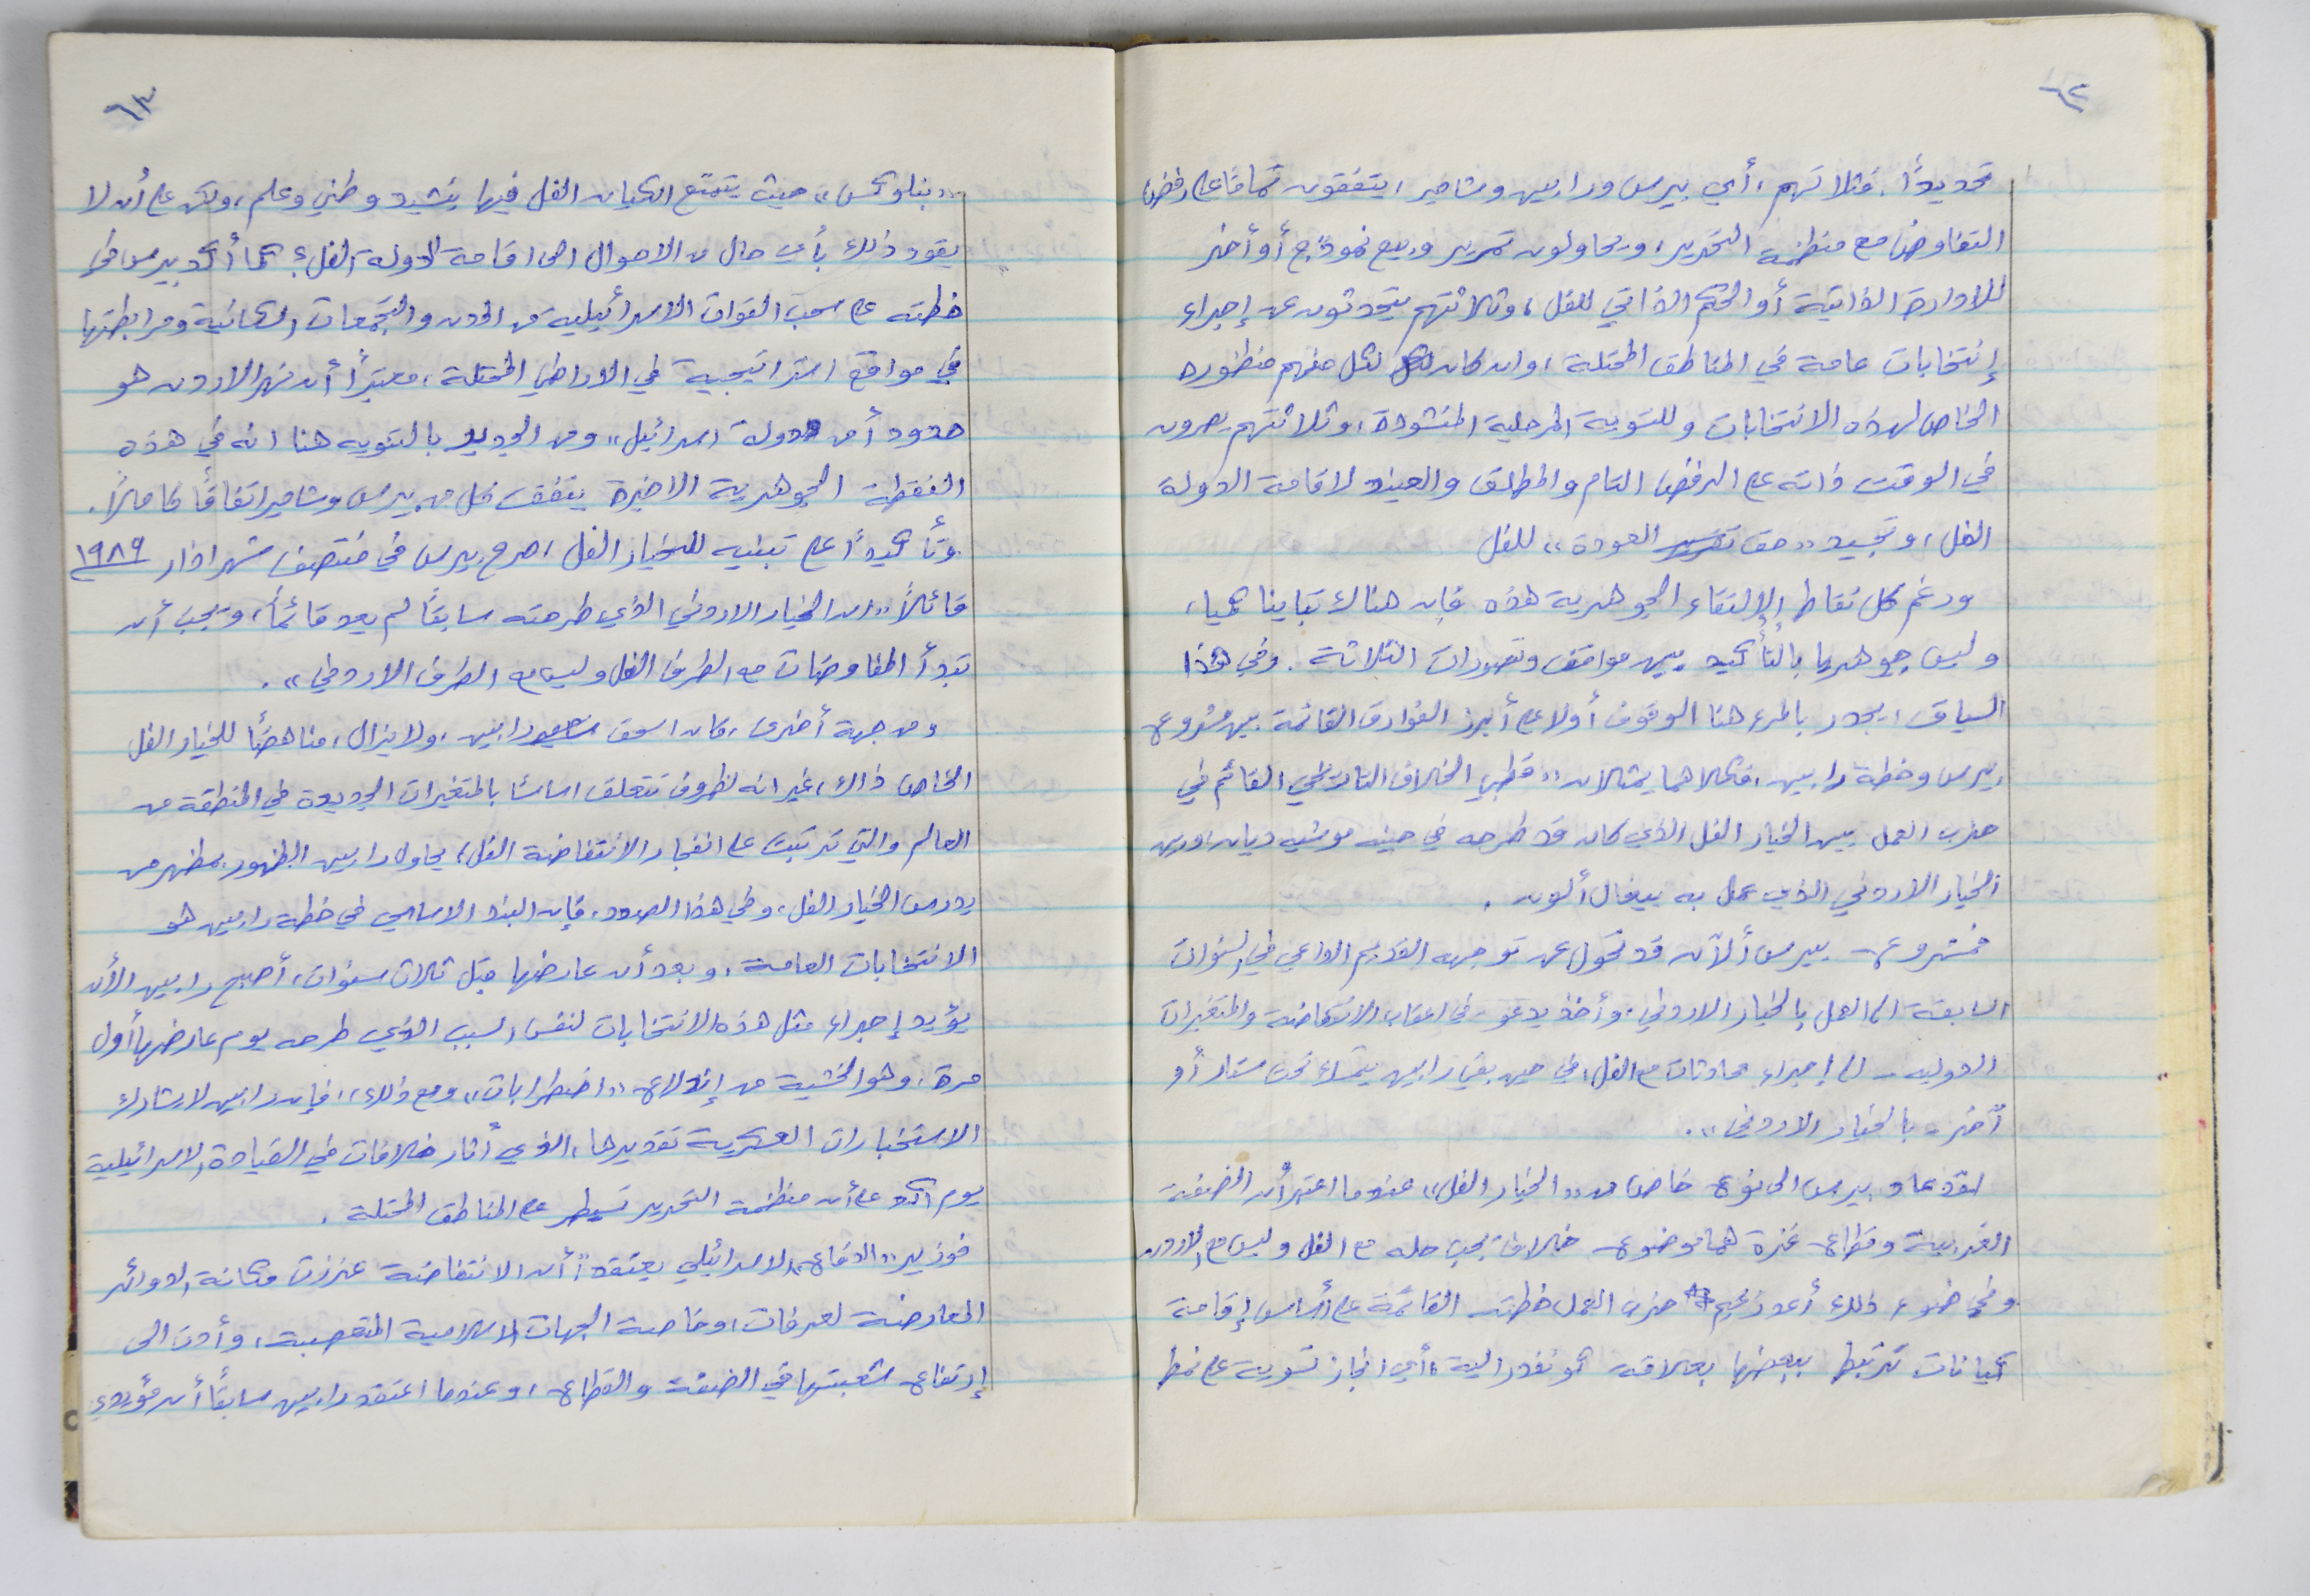 ٦٢
تحديداً. فثلاثتهم، أي بيرس ورابين وشامير، يتفقون تماما على رفض
التفاوض مع منظمة التحرير، ويحاولون تمرير وبيع نموذج أو آخر
للادارة الذاتية أو الحكم الذاتي للفل، وثلاثتهم يتحدثون عن إجراء
إنتخابات عامة في المناطق المحتلة، وان كان لكل منهم منظوره
الخاص لهذه الانتخابات وللتسوية المرحلية المنشودة، وثلاثتهم يصرون
في الوقت ذاته على الرفض التام والمطلق والعنيد لاقامة الدولة
الفل، وتجسيد «حق العودة» للفل
ورغم كل نقاط الإلتقاء الجوهرية هذه فإن هناك تباينا كميا،
وليس جوهريا بالتأكيد بين مواقف وتصورات الثلاثة. وفي هذا
السياق، يجدر بالمرء هنا الوقوف أولا على أبرز الفوارق القائمة بين مشروع
بيرس وخطة رابين، فكلاهما يمثلان «قطبي الخلاف التاريخي القائم في
حزب العمل بين الخيار الفل الذي كان قد طرحه في حينه موشيه ديان، وبين
الخيار الاردني الذي عمل به ييغال ألون.
فمشروع بيرس ألآن قد تحول عن توجهه القديم الداعي في السنوات
السابقة الى العمل بالخيار الاردني، وأخذ يدعو - في اعقاب الانتفاضة والمتغيرات
الدولية - الى إجراء محادثات مع الفل، في حين بقي رابين يتمسك تحت ستار أو
آخر - بالخيار الاردني».
لقد عاد بيرس الى نوع خاص من «الخيار الفل» عندما اعتبر أن الضفة
الغربية وقطاع غزة هما موضوع خلاف يجب حله مع الفل وليس مع الاردن
وفي ضوء ذلك أعد زعيم حزب العمل خطته القائمة على أساس إقامة
كيانات ترتبط ببعضها بعلاقة كونفدرالية، أي انجاز تسوية على نمط
٦٣
«بنلوكس» حيث يتمتع الكيان الفل فيها بنشيد وطني وعلم، ولكن على أن لا
يقود ذلك بأي حال من الاحوال الى اقامة الدولة الفل، كما أكد بيرس في
خطته على سحب القوات الاسرائيلية من المدن والتجمعات السكانية ومرابطتها
في مواقع استراتيجية في الاراضي المحتلة، معتبراً أن نهر الاردن هو
حدود أمن «دولة اسرائيل» ومن الجدير بالتنويه هنا انه في هذه
النقطة الجوهرية الاخيرة يتفق كل من بيرس وشامير اتفاقاً كاملاً.
وتأكيداً على تبنيه للخيار الفل، صرح بيرس في منتصف شهر اذار ١٩٨٩
قائلاً «ان الخيار الاردني الذي طرحته سابقاً لم يعد قائماً، ويجب أن
تبدأ المفاوضات مع الطرف الفل وليس مع الطرف الاردني».
ومن جهة أخرى، كان اسحق رابين، ولا يزال، مناهضاً للخيار الفل
الخاص ذاك، غير انه لظروف تتعلق اساسا بالمتغيرات الجديدة في المنطقة من
العالم والتي ترتبت على انفجار الانتفاضة الفل، يحاول رابين الظهور بمظهر من
يدرس الخيار الفل، وفي هذا الصدد، فإن البند الاساسي في خطة رابين هو
الانتخابات العامة، وبعد أن عارضها قبل ثلاث سنوات، أصبح رابين الآن
يؤيد إجراء مثل هذه الانتخابات لنفس السبب الذي طرحه يوم عارضها أول
مرة، وهو الخشية من إندلاع «اضطرابات»، ومع ذلك، فإن رابين لا يشارك
الاستخبارات العسكرية تقديرها، الذي أثار خلافات في القيادة الاسرائيلية
يوم اكد على أن منظمة التحرير تسيطر على المناطق المحتلة.
فوزير «الدفاع» الاسرائيلي يعتقد: أن الانتفاضة عززت مكانة الدوائر
المعارضة لعرفات، وخاصة الجهات الاسلامية المتعصبة، وأدت الى
إرتفاع شعبيتها في الضفة والقطاع، وعندما اعتقد رابين سابقاً أن مؤيدي